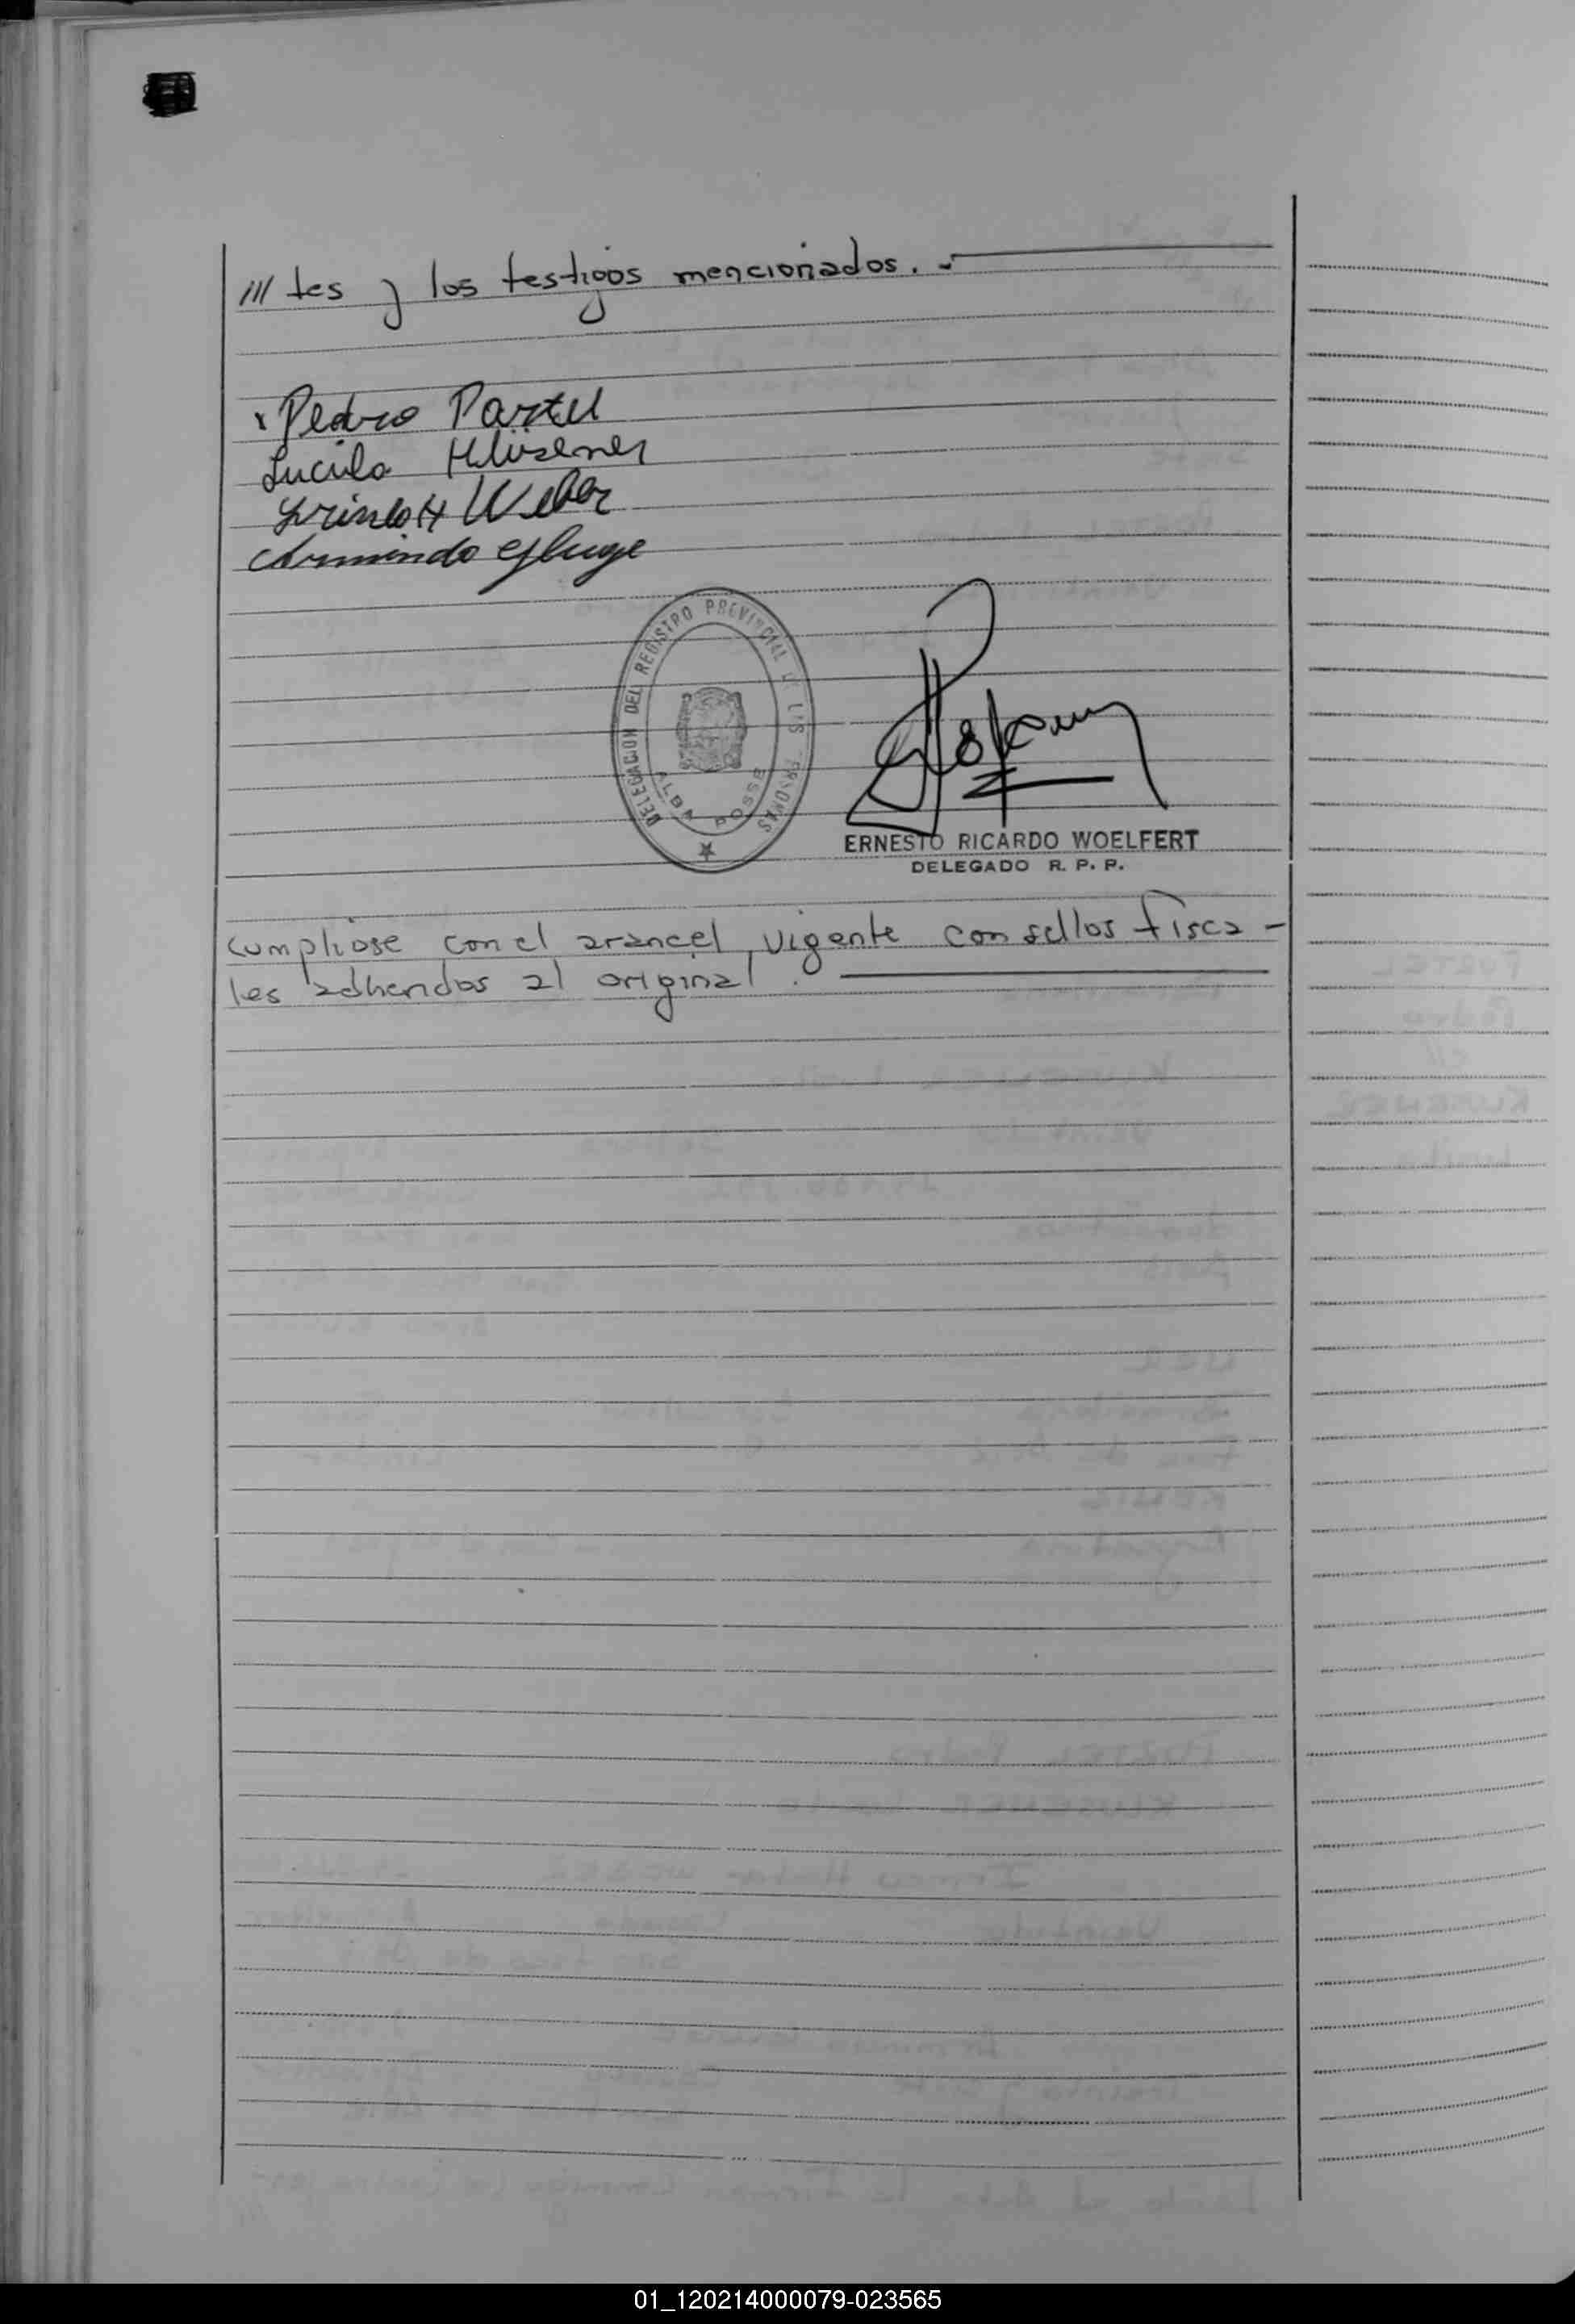 /// tes y los testigos mencionados. -
Pedro Partel
Lucila Klüsener
Weber
Armindo
DELEGACION DEL REGISTRO PROVINCIAL DE LAS PERSONAS
ALBA POSSE
ERNESTO RICARDO WOELFERT
DELEGADO R. P. P.
cumpliose con el arancel vigente con sellos fisca-
les adheridos al original.
01_120214000079-023565